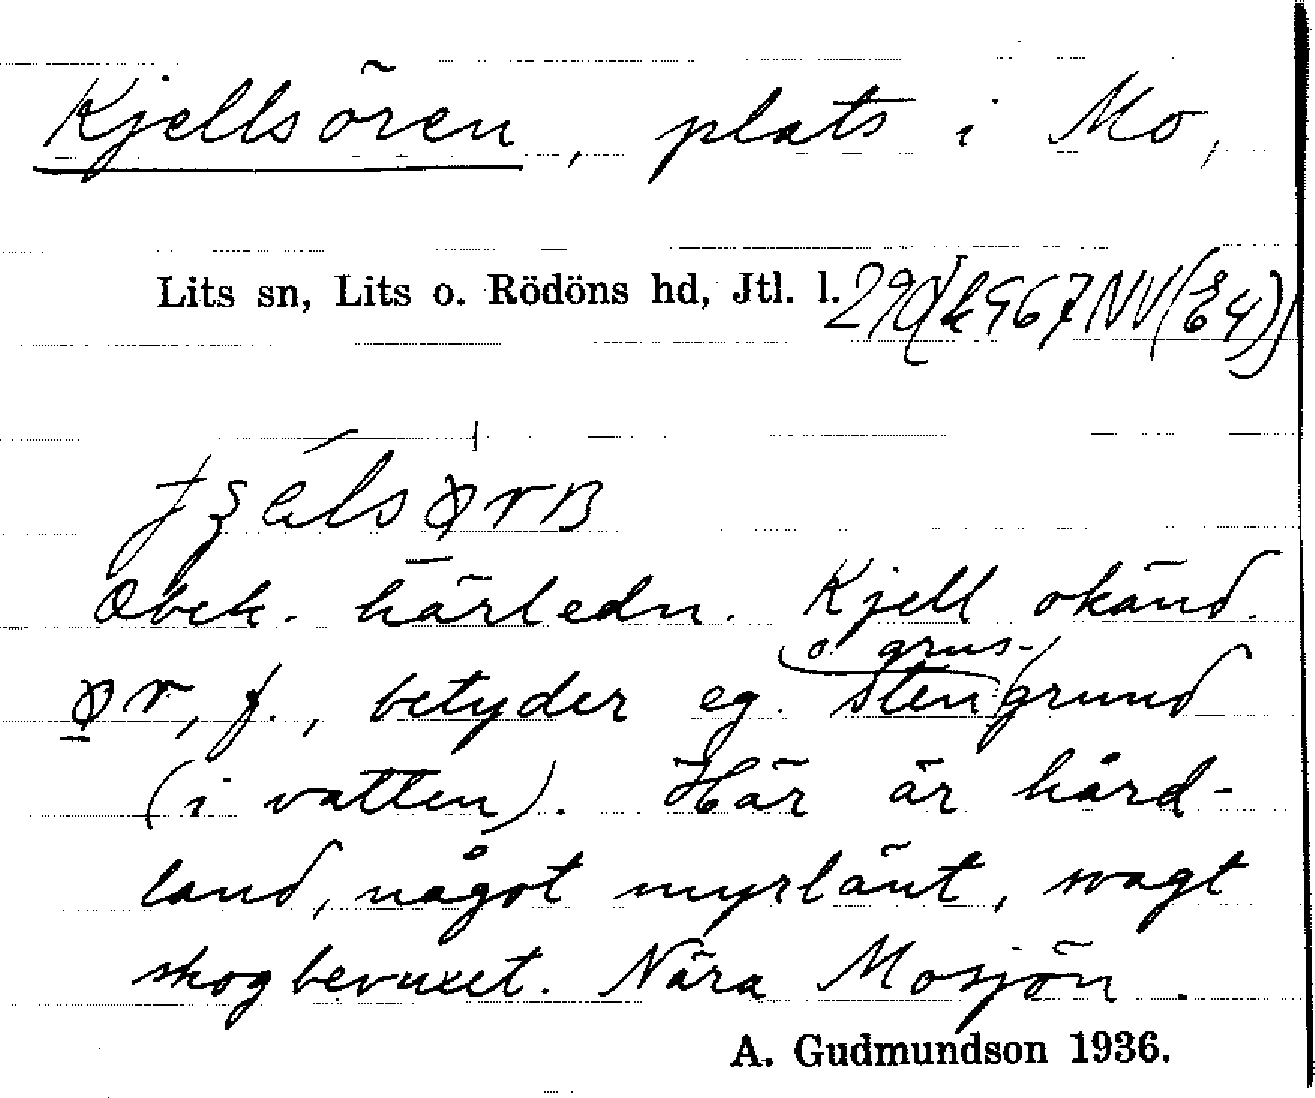 Kjellsören, plats i Mo,
Lits sn, Lits o. Rödöns hd, Jtl. l.
Obek. härledn. Kjell okänd.
o grus-
ør, f., betyder eg. stengrund
(i vatten). Här är hård-
land, något myrlänt, svagt
skogbevuxet. Nära Mosjön.
A. Gudmundson 1936.